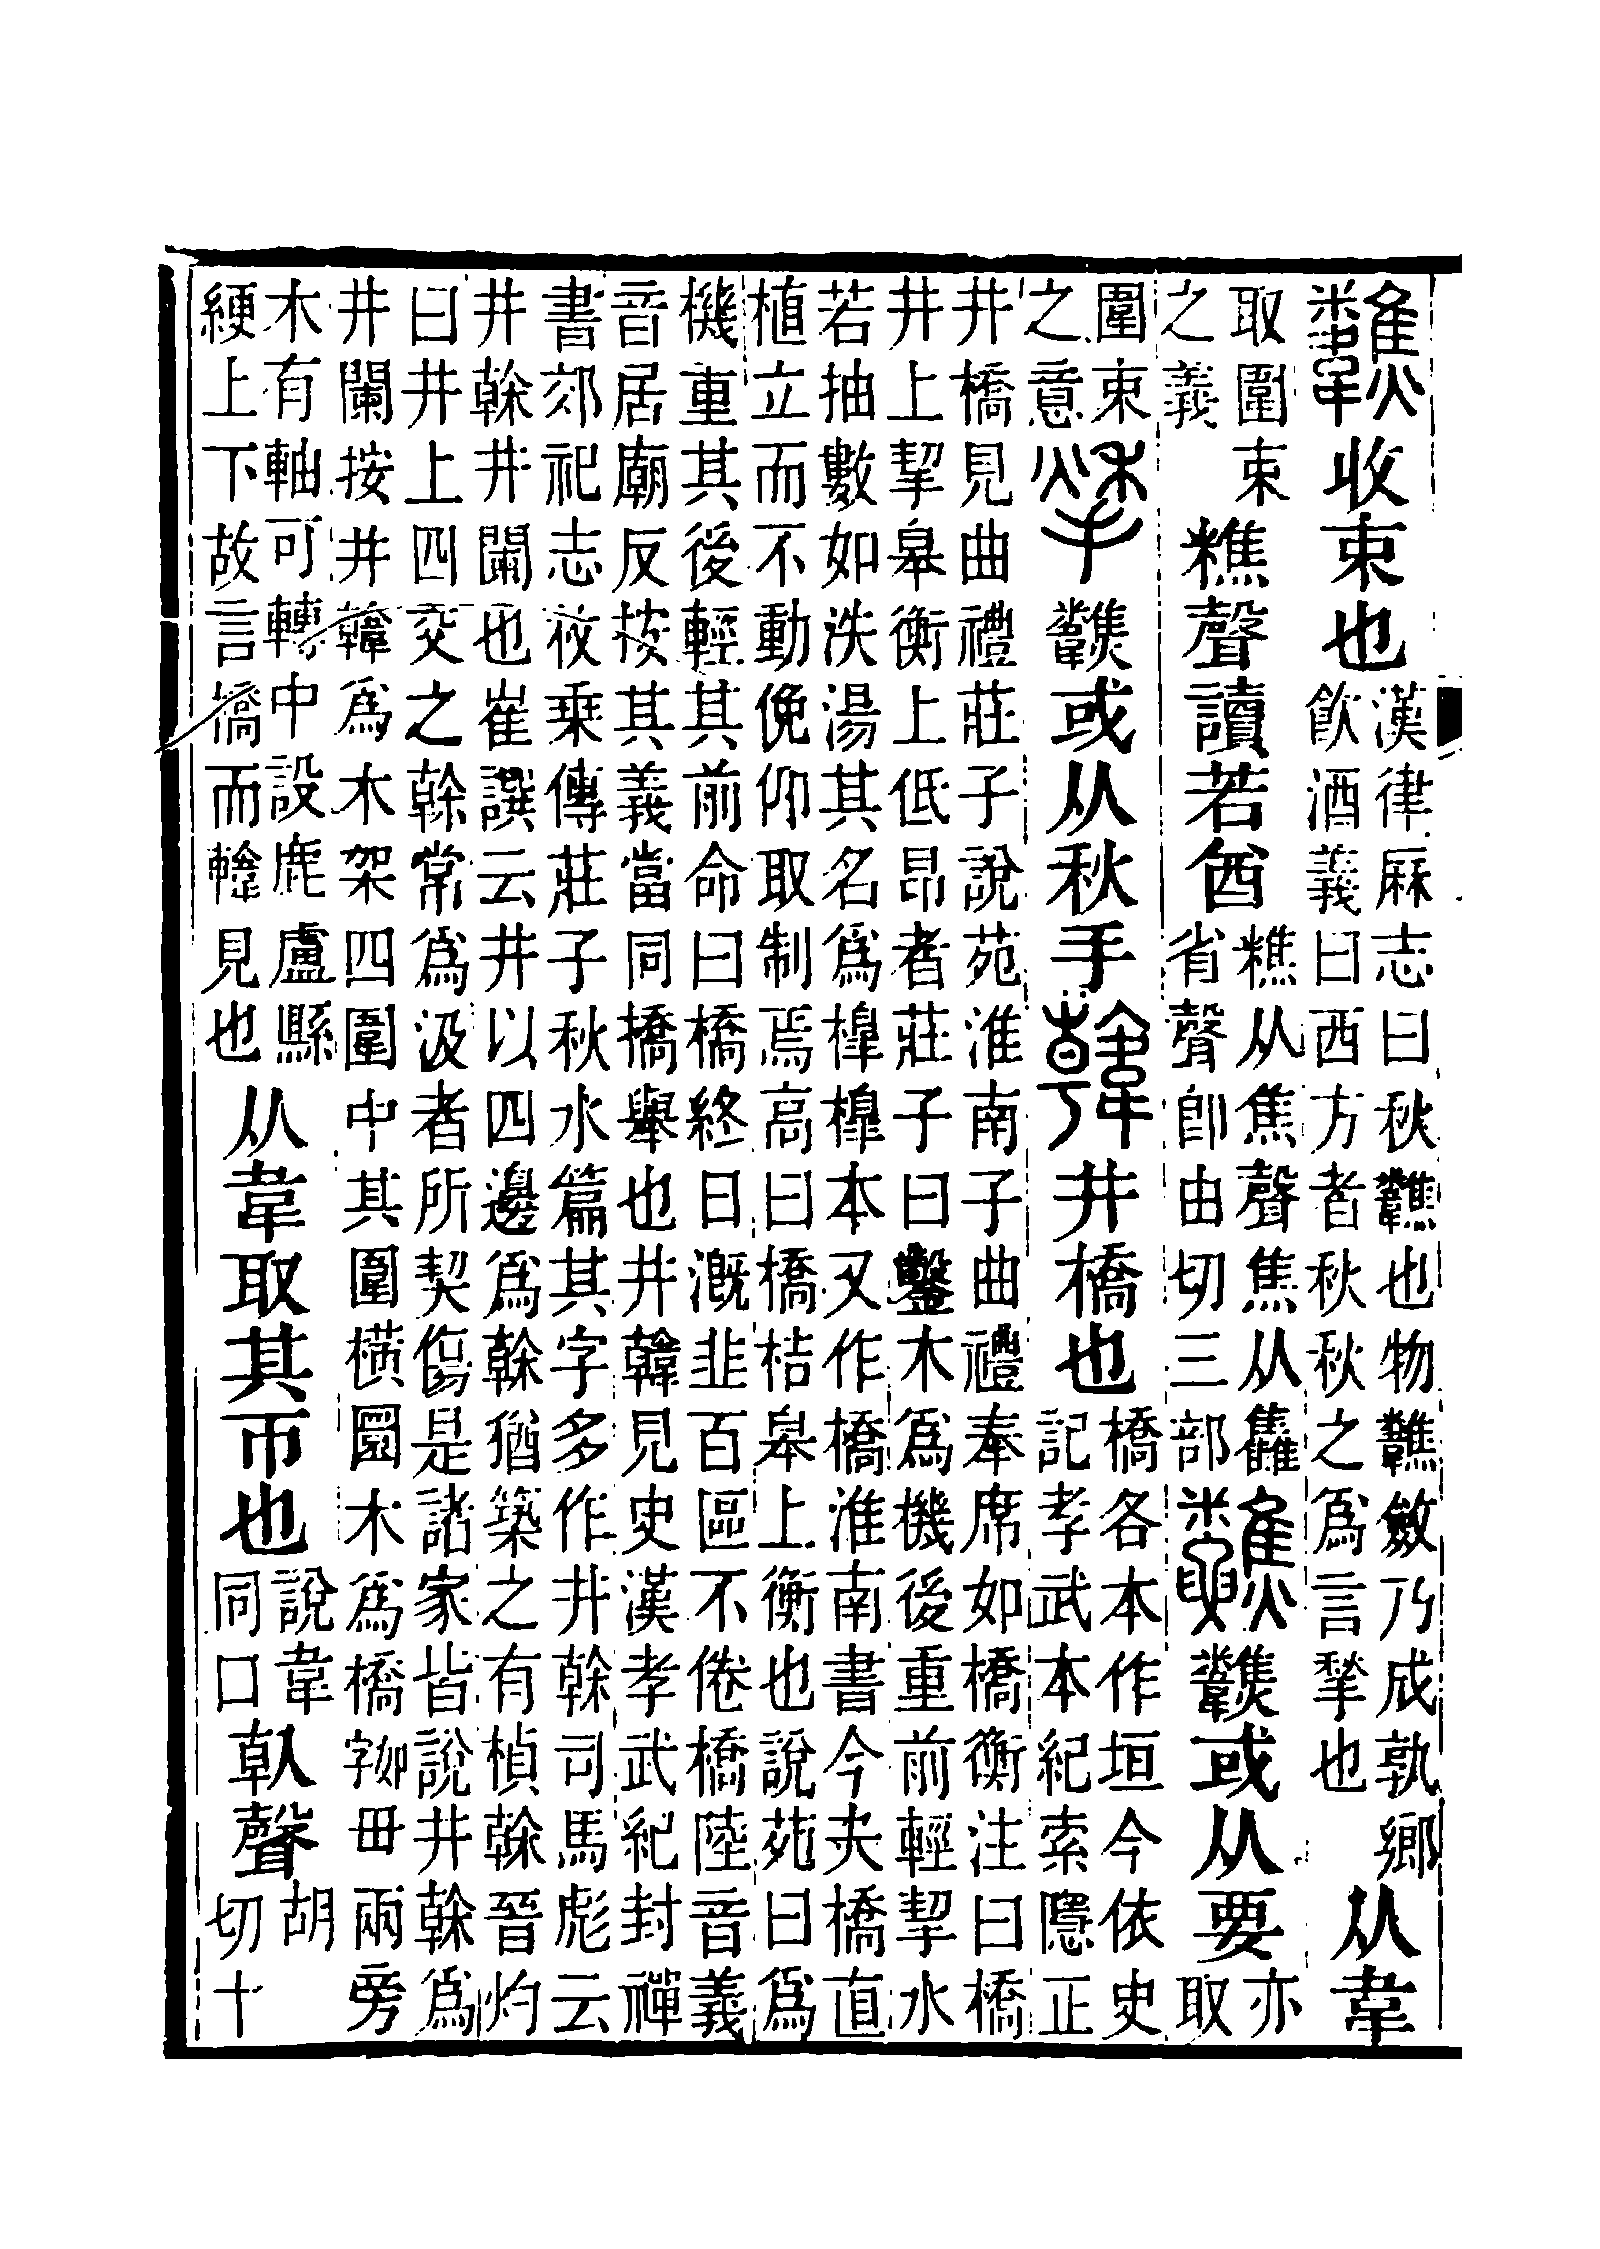 𩏷收束也
漢律厤志曰秋𩏷也物𩏷斂乃成孰鄉
飮酒義曰西方者秋秋之爲言揫也
从韋
取圍束
之義
𥼚聲讀若酋
𥼚从焦聲焦从雥
省聲卽由切三部
𩏷或从要
亦
取
圍束
之意
揫𩏷或从秋手
韓井橋也
橋各本作垣今依史
記孝武本紀索隱正
井橋見曲禮莊子說苑淮南子曲禮奉席如橋衡注曰橋
井上挈皋衡上低昂者莊子曰鑿木爲機後重前輕挈水
若抽數如泆湯其名爲槹槹本又作橋淮南書今夫橋直
植立而不動俛仰取制焉高曰橋桔皋上衡也說苑曰爲
機重其後輕其前命曰橋終日漑韭百區不倦橋陸音義
音居廟反按其義當同撟舉也井韓見史漢孝武紀封禪
書郊祀志枚乗傳莊子秋水篇其字多作井榦司馬彪云
井榦井闌也崔譔云井以四邊爲榦猶築之有楨榦晉灼
曰井上四交之榦常爲汲者所契傷是諸家皆說井榦爲
井闌按井韓爲木架四圍中其圍橫圜木爲橋字如毌兩旁
木有軸可轉中設鹿盧縣
綆上下故言橋而韓見也
从韋取其帀也
說韋
同囗
倝聲
胡
切十